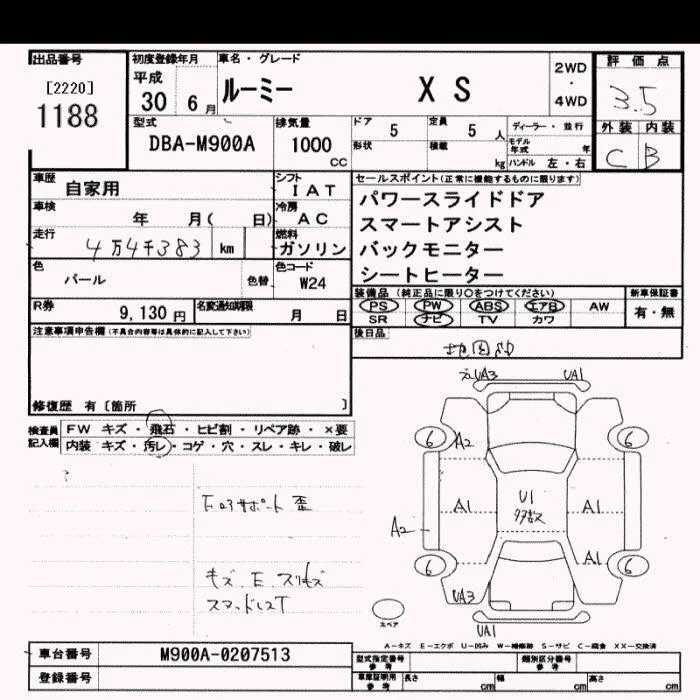 出品番号 初度登録年月 車名・グレード 評価点
[2220] 平成 ルーミー X S 2WD・4WD 3.5
1188 30 6月
型式 排気量 ドア 5 定員 5人 ディーラー・並行 外装 内装
DBA-M900A 1000CC 形状 積載 kg モデル年式 年 C B
ハンドル 左・右
車歴 自家用 シフト IAT セールスポイント(正常に機能するものに限ります)
車検 年 月( 日) 冷房 AC パワースライドドア
走行 4万4千383 km 燃料 ガソリン スマートアシスト
色 パール 色替 色コード W24 バックモニター
シートヒーター
R券 9,130円 名変通知期限 月 日 装備品(純正品に限り○をつけてください) 新車保証書
PS PW ABS エアB AW 有・無
SR ナビ TV カワ
注意事項申告欄(不具合内容等は具体的に記入して下さい) 後日品
修復歴 有〔箇所 〕
検査員記入欄 FW キズ・飛石・ヒビ割・リペア跡・×要
内装 キズ・汚レ・コゲ・穴・スレ・キレ・破レ
UA3 UA1
6 A2 6
A1 U1 A1
A2
A1
6 6
UA3
UA1
キズ、E、スリキズ
スペア
A-キズ E-エクボ U-凹み W-補修跡 S-サビ C-腐食 XX-交換済
車台番号 M900A-0207513 型式指定番号 参考 類別区分番号 参考
登録番号 車庫証明用 参考 長さ cm 幅 cm 高さ cm